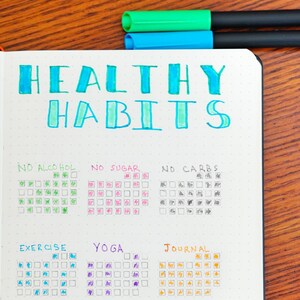 HEALTHY
HABITS
NO ALCOHOL NO SUGAR NO CARBS
EXERCISE YOGA JOURNAL